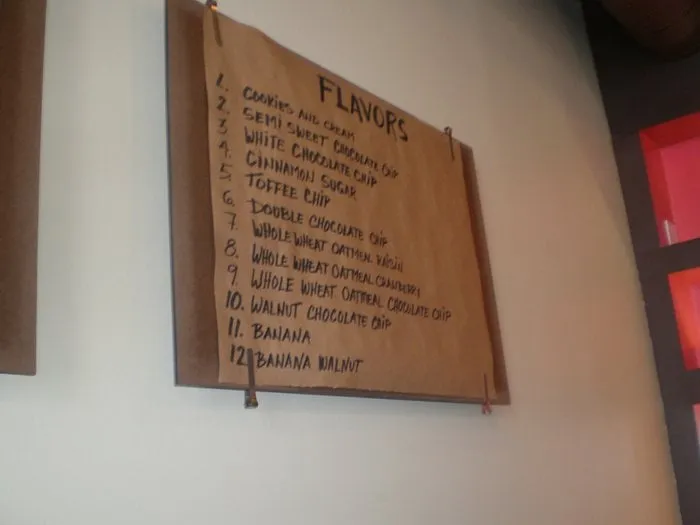 FLAVORS
1. COOKIES AND CREAM
2. SEMI SWEET CHOCOLATE CHIP
3. WHITE CHOCOLATE CHIP
4. CINNAMON SUGAR
5. TOFFEE CHIP
6. DOUBLE CHOCOLATE CHIP
7. WHOLE WHEAT OATMEAL RAISIN
8. WHOLE WHEAT OATMEAL CRANBERRY
9. WHOLE WHEAT OATMEAL CHOCOLATE CHIP
10. WALNUT CHOCOLATE CHIP
11. BANANA
12. BANANA WALNUT